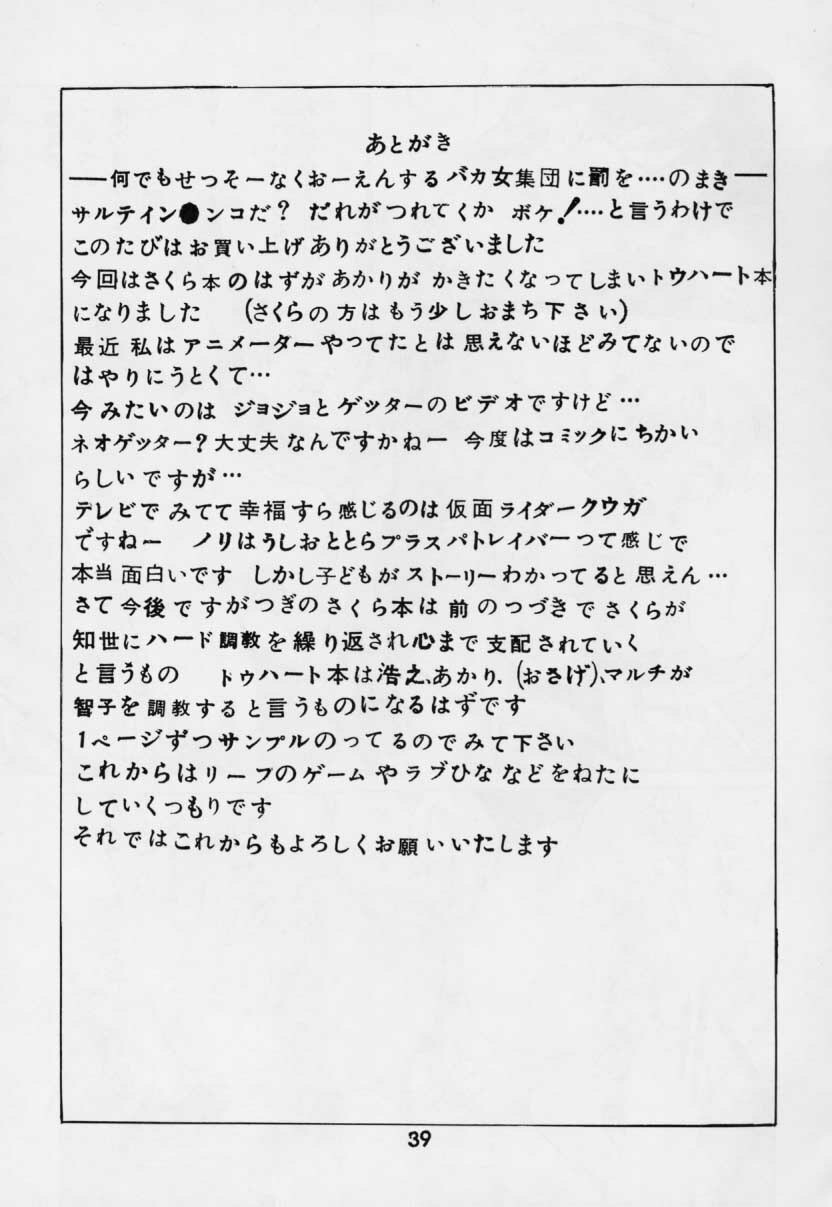 あとがき
──何でもせっそーなくおーえんするバカ女集団に罰を‥‥のまき─
サルティン●ンコだ？ だれがつれてくか ボケ！‥‥と言うわけで
このたびはお買い上げありがとうございました
今回はさくら本のはずがあかりが かきたくなってしまいトゥハート本
になりました (さくらの方はもう少しおまち下さい)
最近 私はアニメーターやってたとは 思えないほどみてないので
はやりにうとくて…
今 みたいのは ジョジョとゲッターのビデオですけど…
ネオゲッター？大丈夫なんですかねー 今度はコミックにちかい
らしいですが…
テレビで みてて幸福すら感じるのは仮面ライダークウガ
ですねー ノリはうしおととらプラスパトレイバーつて感じで
本当 面白いです しかし子どもが ストーリーわかってると思えん…
さて今後ですがつぎのさくら本は 前のつづきでさくらが
知世にハード調教を繰り返され心まで支配されていく
と言うもの トゥハート本は浩之、あかり、(おさげ)、マルチが
智子を調教すると言うものになるはずです
1ページずつサンプルのってるのでみて下さい
これからはリーフのゲームやラブひななどをねたに
していくつもりです
それではこれからもよろしくお願いいたします
39